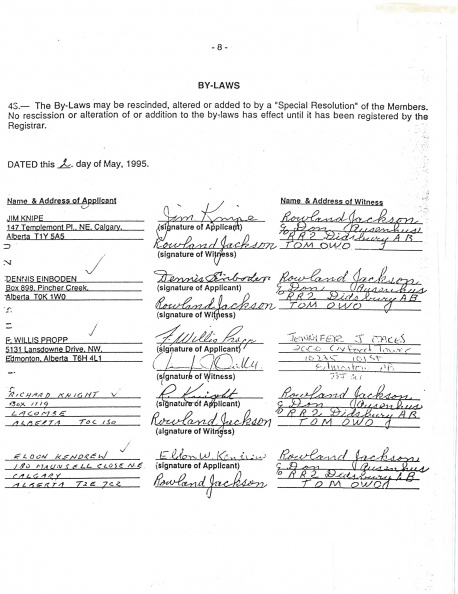 - 8 -
BY-LAWS
43.— The By-Laws may be rescinded, altered or added to by a "Special Resolution" of the Members.
No rescission or alteration of or addition to the by-laws has effect until it has been registered by the
Registrar.
DATED this 2 day of May, 1995.
Name & Address of Applicant
Name & Address of Witness
JIM KNIPE
147 Templemont Pl., NE. Calgary,
Alberta T1Y 5A5
Jim Knipe
(signature of Applicant)
Rowland Jackson
(signature of Witness)
Rowland Jackson
% Don
RR2 Didsbury AB
TOM OWO
DENNIS EINBODEN
Box 898, Pincher Creek.
Alberta T0K 1W0
Dennis Einboden
(signature of Applicant)
Rowland Jackson
(signature of Witness)
Rowland Jackson
% Don
RR2 Didsbury AB
TOM OWO
F. WILLIS PROPP
5131 Lansdowne Drive, NW.
Edmonton, Alberta T6H 4L1
F. Willis Propp
(signature of Applicant)
(signature of Witness)
JENNIFER J
Oxford Tower
10235 101 ST
Edmonton AB
RICHARD KNIGHT
BOX 1119
LACOMBE
ALBERTA TOC 1SO
R. Knight
(signature of Applicant)
Rowland Jackson
(signature of Witness)
Rowland Jackson
% Don
RR2 Didsbury AB
TOM OWO
ELDON KENDREW
180 MAUNSELL CLOSE NE
CALGARY
ALBERTA T2E 7C2
Eldon W. Kendrew
(signature of Applicant)
Rowland Jackson
Rowland Jackson
% Don
RR2 Didsbury AB
TOM OWO